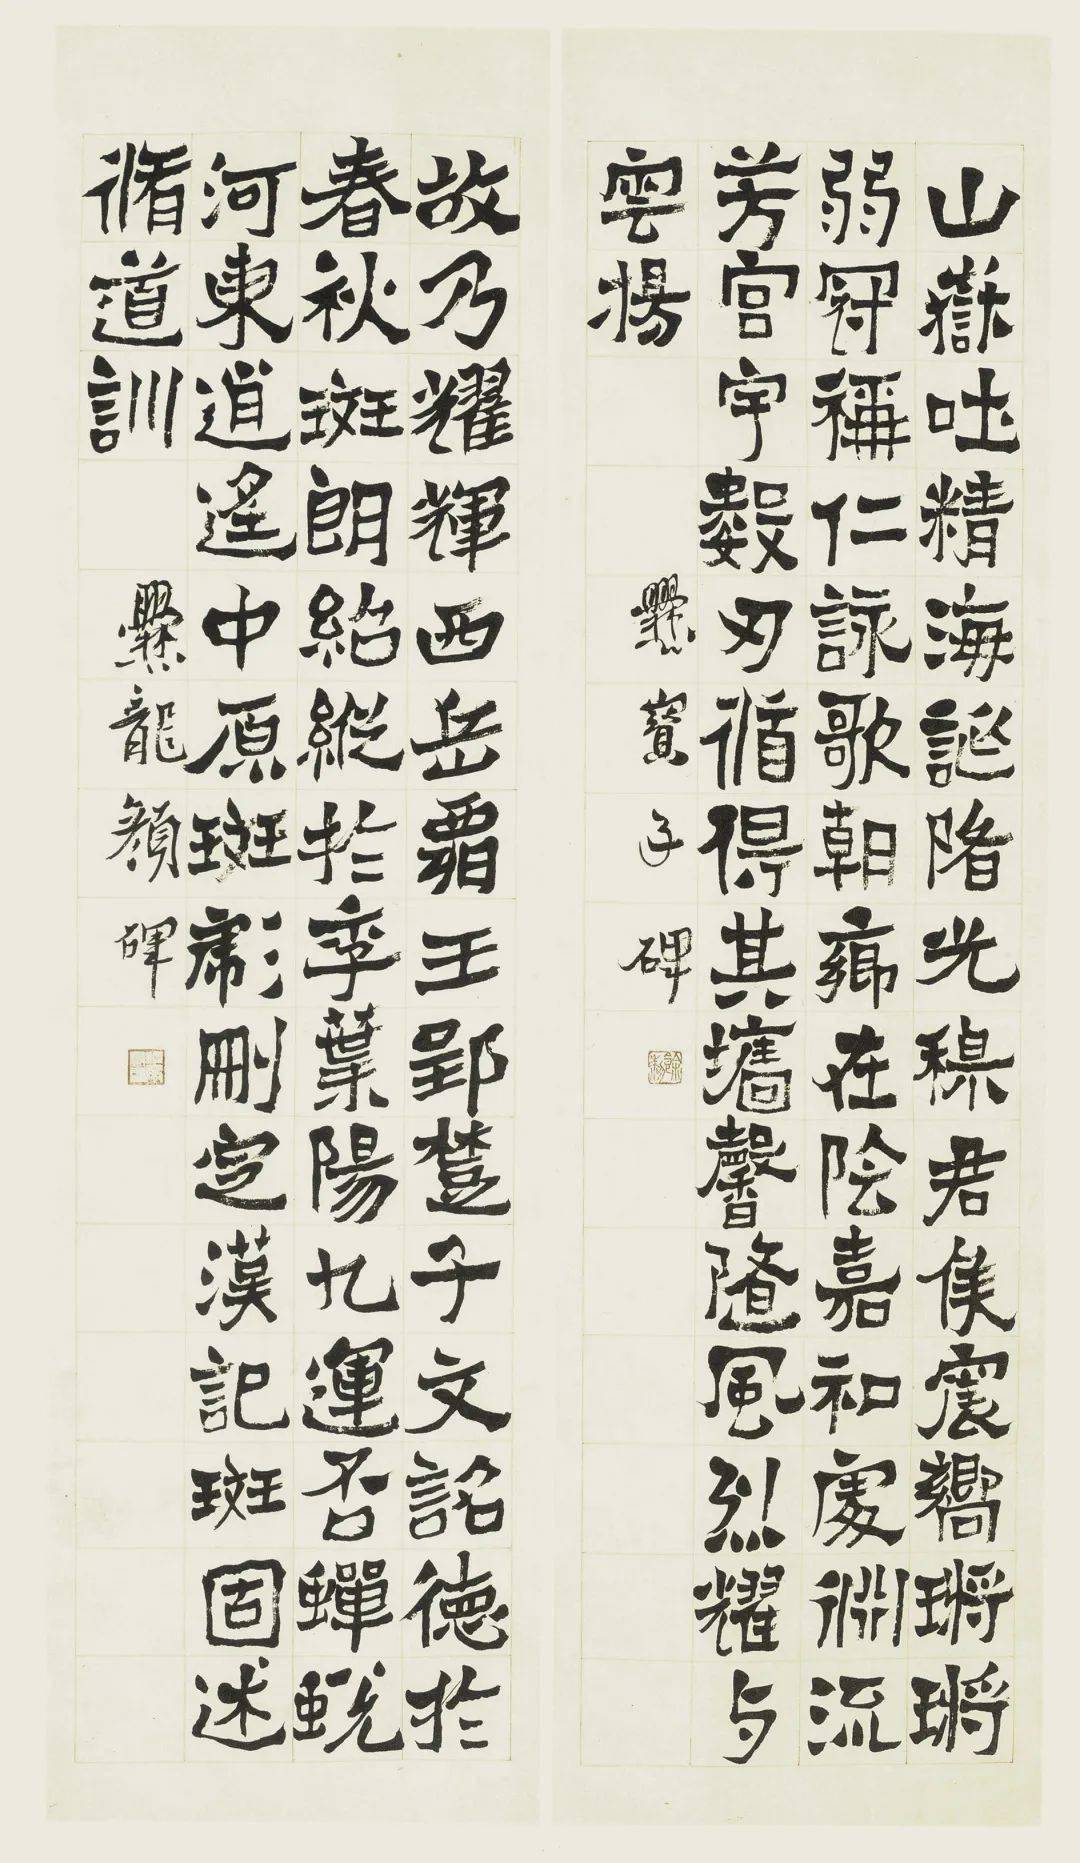 山嶽吐精海誕陏光穆君侯震嚮鏘鏘
弱冠稱仁詠歌朝鄉在陰嘉和處淵流
芳宮宇數刃循得其墻馨隨風烈耀与
雲揚
爨寶子碑
故乃耀輝西岳霸王郢楚子文詺德於
春秋斑朗紹縱於季葉陽九運否蟬蛻
河東逍遙中原斑彪刪定漢記斑固述
脩道訓
爨龍顏碑